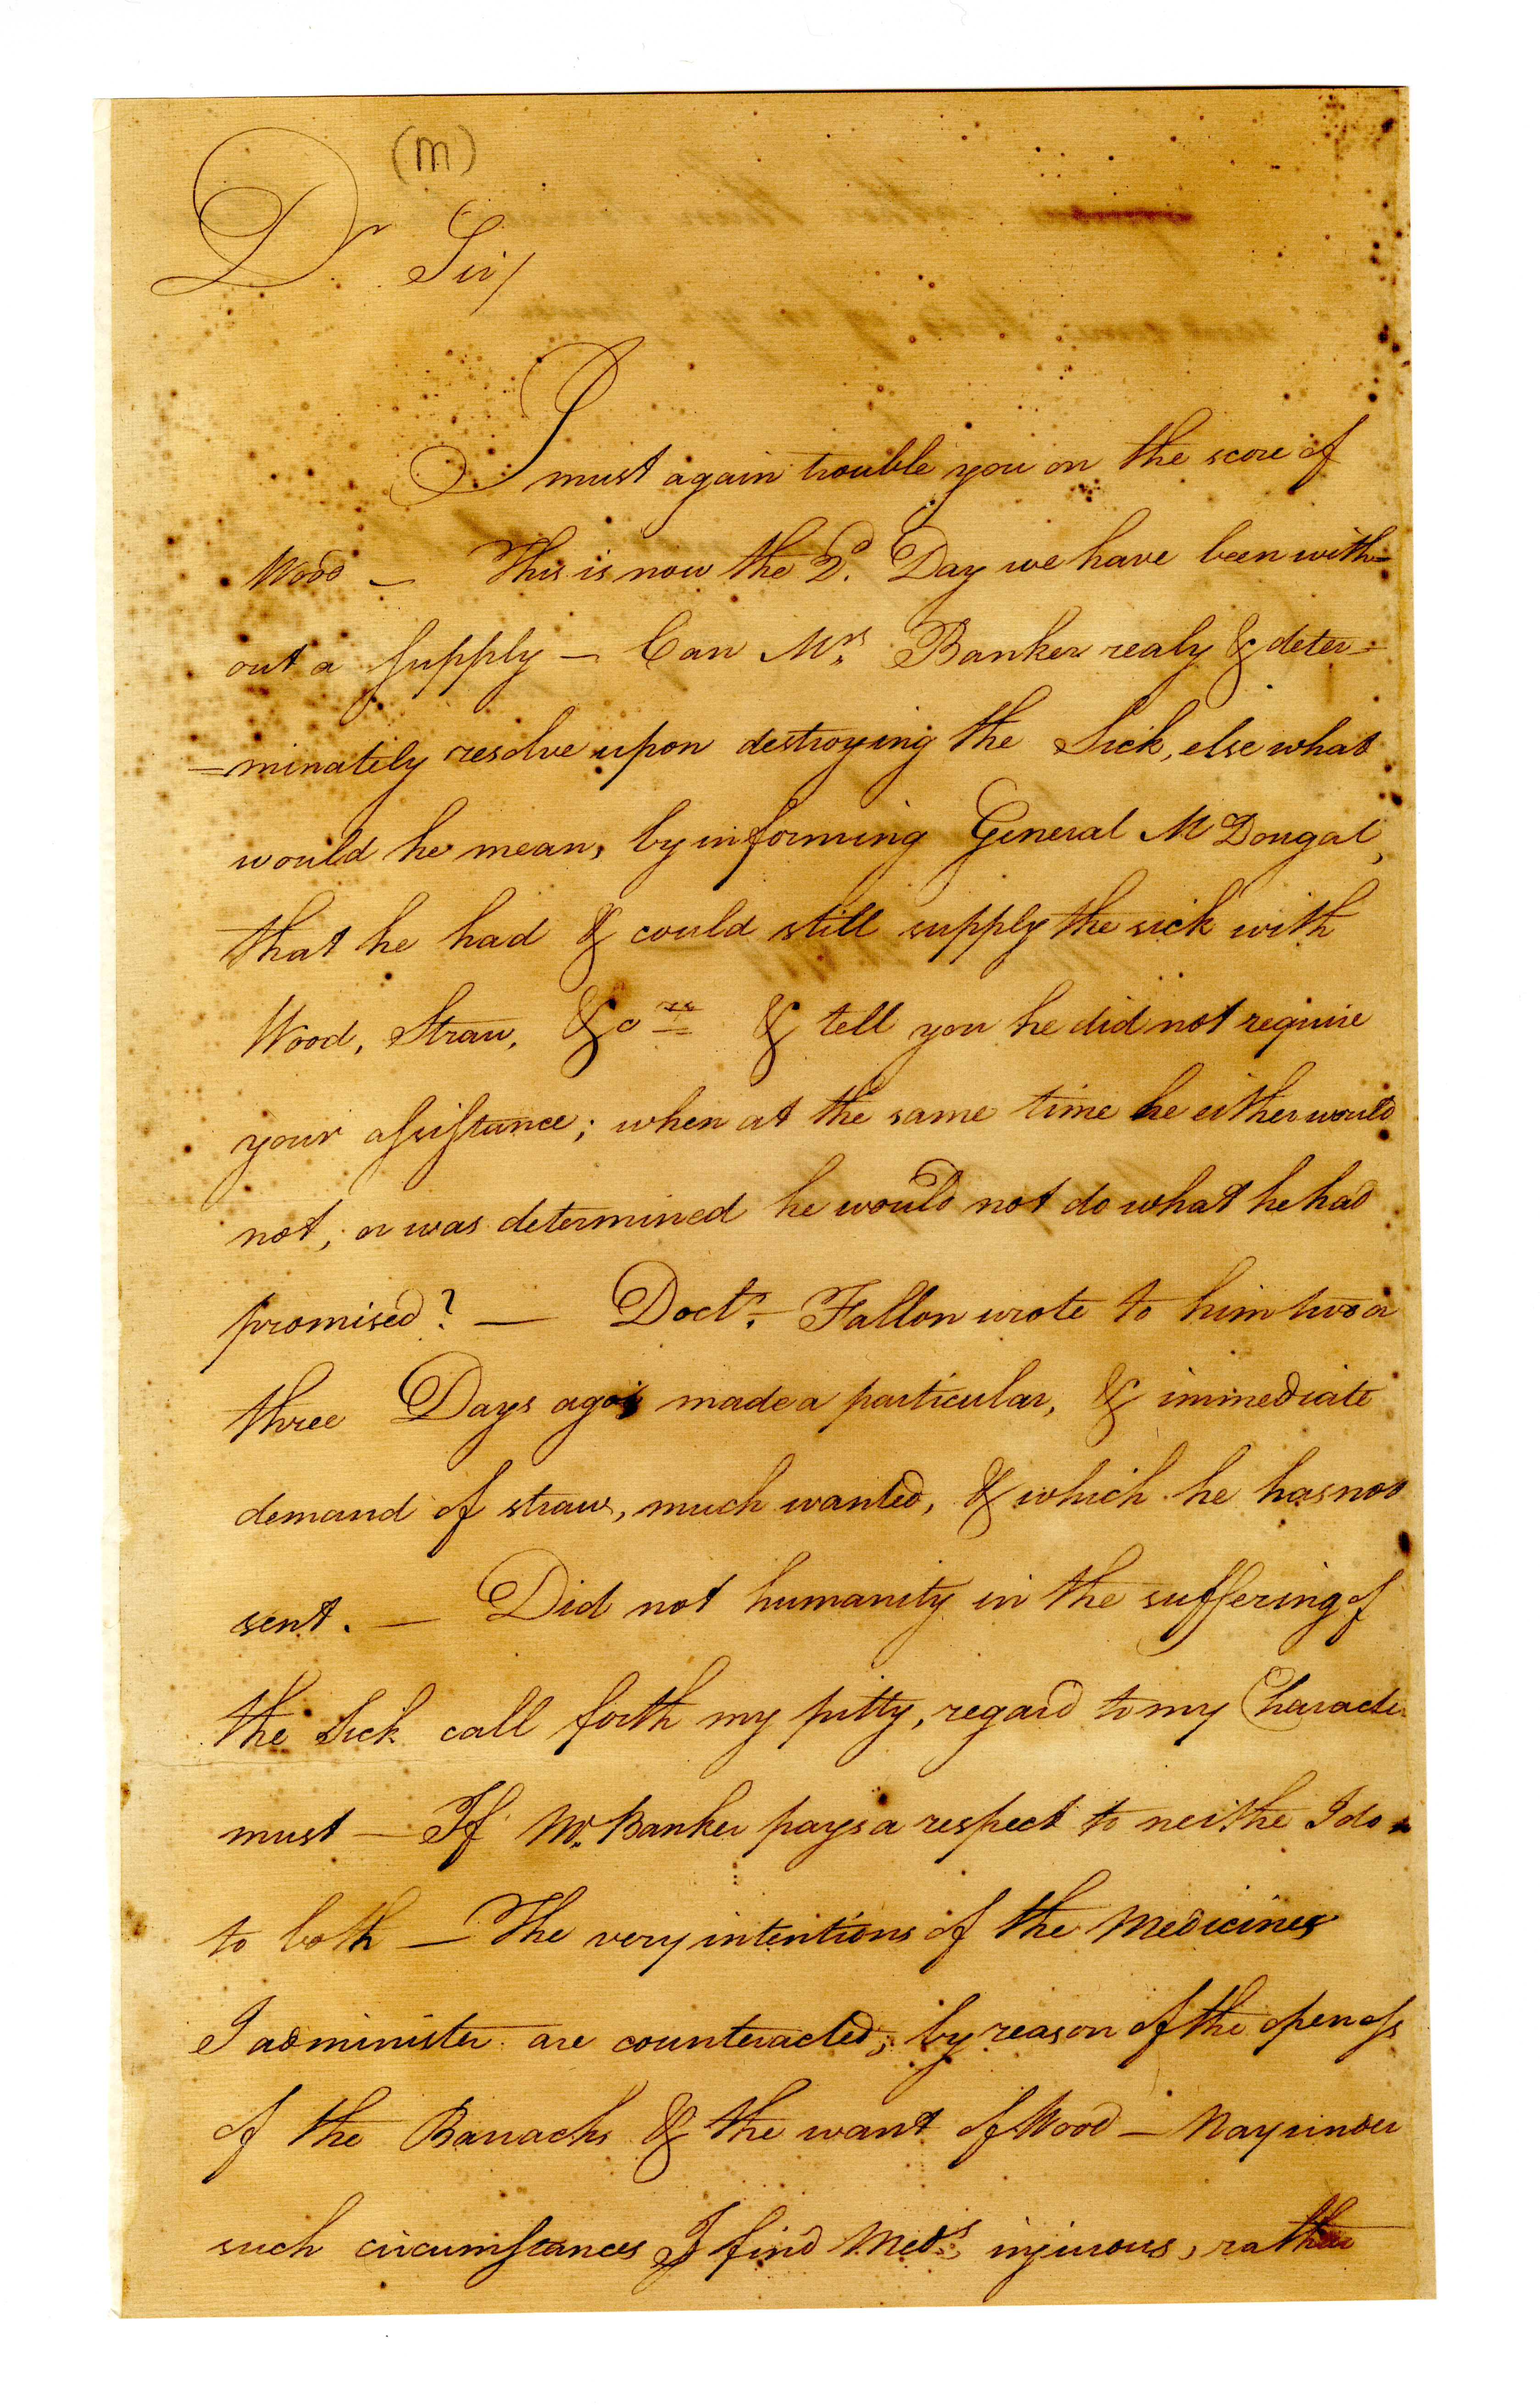 (m)
Dr Sir/
I must again trouble you on the score of
Wood — This is now the 2d. Day we have been with=
out a supply — Can Mrs. Banker realy & deter=
=minately resolve upon destroying the Sick, else what
would he mean, by informing General McDougal,
that he had & could still supply the sick with
Wood, Straw, &c & tell you he did not require
your assistance; when at the same time he either would
not, or was determined he would not do what he had
promised? — Doctr. Fallon wrote to him two or
three Days ago, made a particular, & immediate
demand of straw, much wanted, & which he has not
sent. — Did not humanity in the suffering of
the Sick call forth my pitty, regard to my Character
must — If Mr. Banker pays a respect to neithe I do
to both — The very intentions of the Medicines
I administer are counteracted, by reason of the openess
of the Barracks & the want of Wood — Nay under
such circumstances I find Meds. injurous, rather